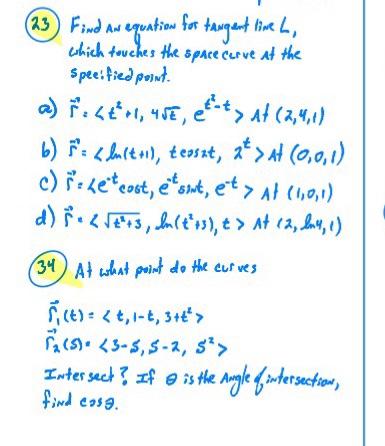 23 Find an equation for tangent line L,
which touches the space curve at the
specified point.
a) r⃗ = <t²+1, 4√t, e^(t²-t)> At (2,4,1)
b) r⃗ = <ln(t+1), tcos2t, 2^t> At (0,0,1)
c) r⃗ = <e^-t cost, e^-t sint, e^-t> At (1,0,1)
d) r⃗ = <√(t²+3), ln(t²+3), t> At (2, ln4, 1)
34 At what point do the curves
r⃗₁(t) = <t, 1-t, 3+t²>
r⃗₂(s) = <3-s, s-2, s²>
Intersect? If θ is the angle of intersection,
find cosθ.